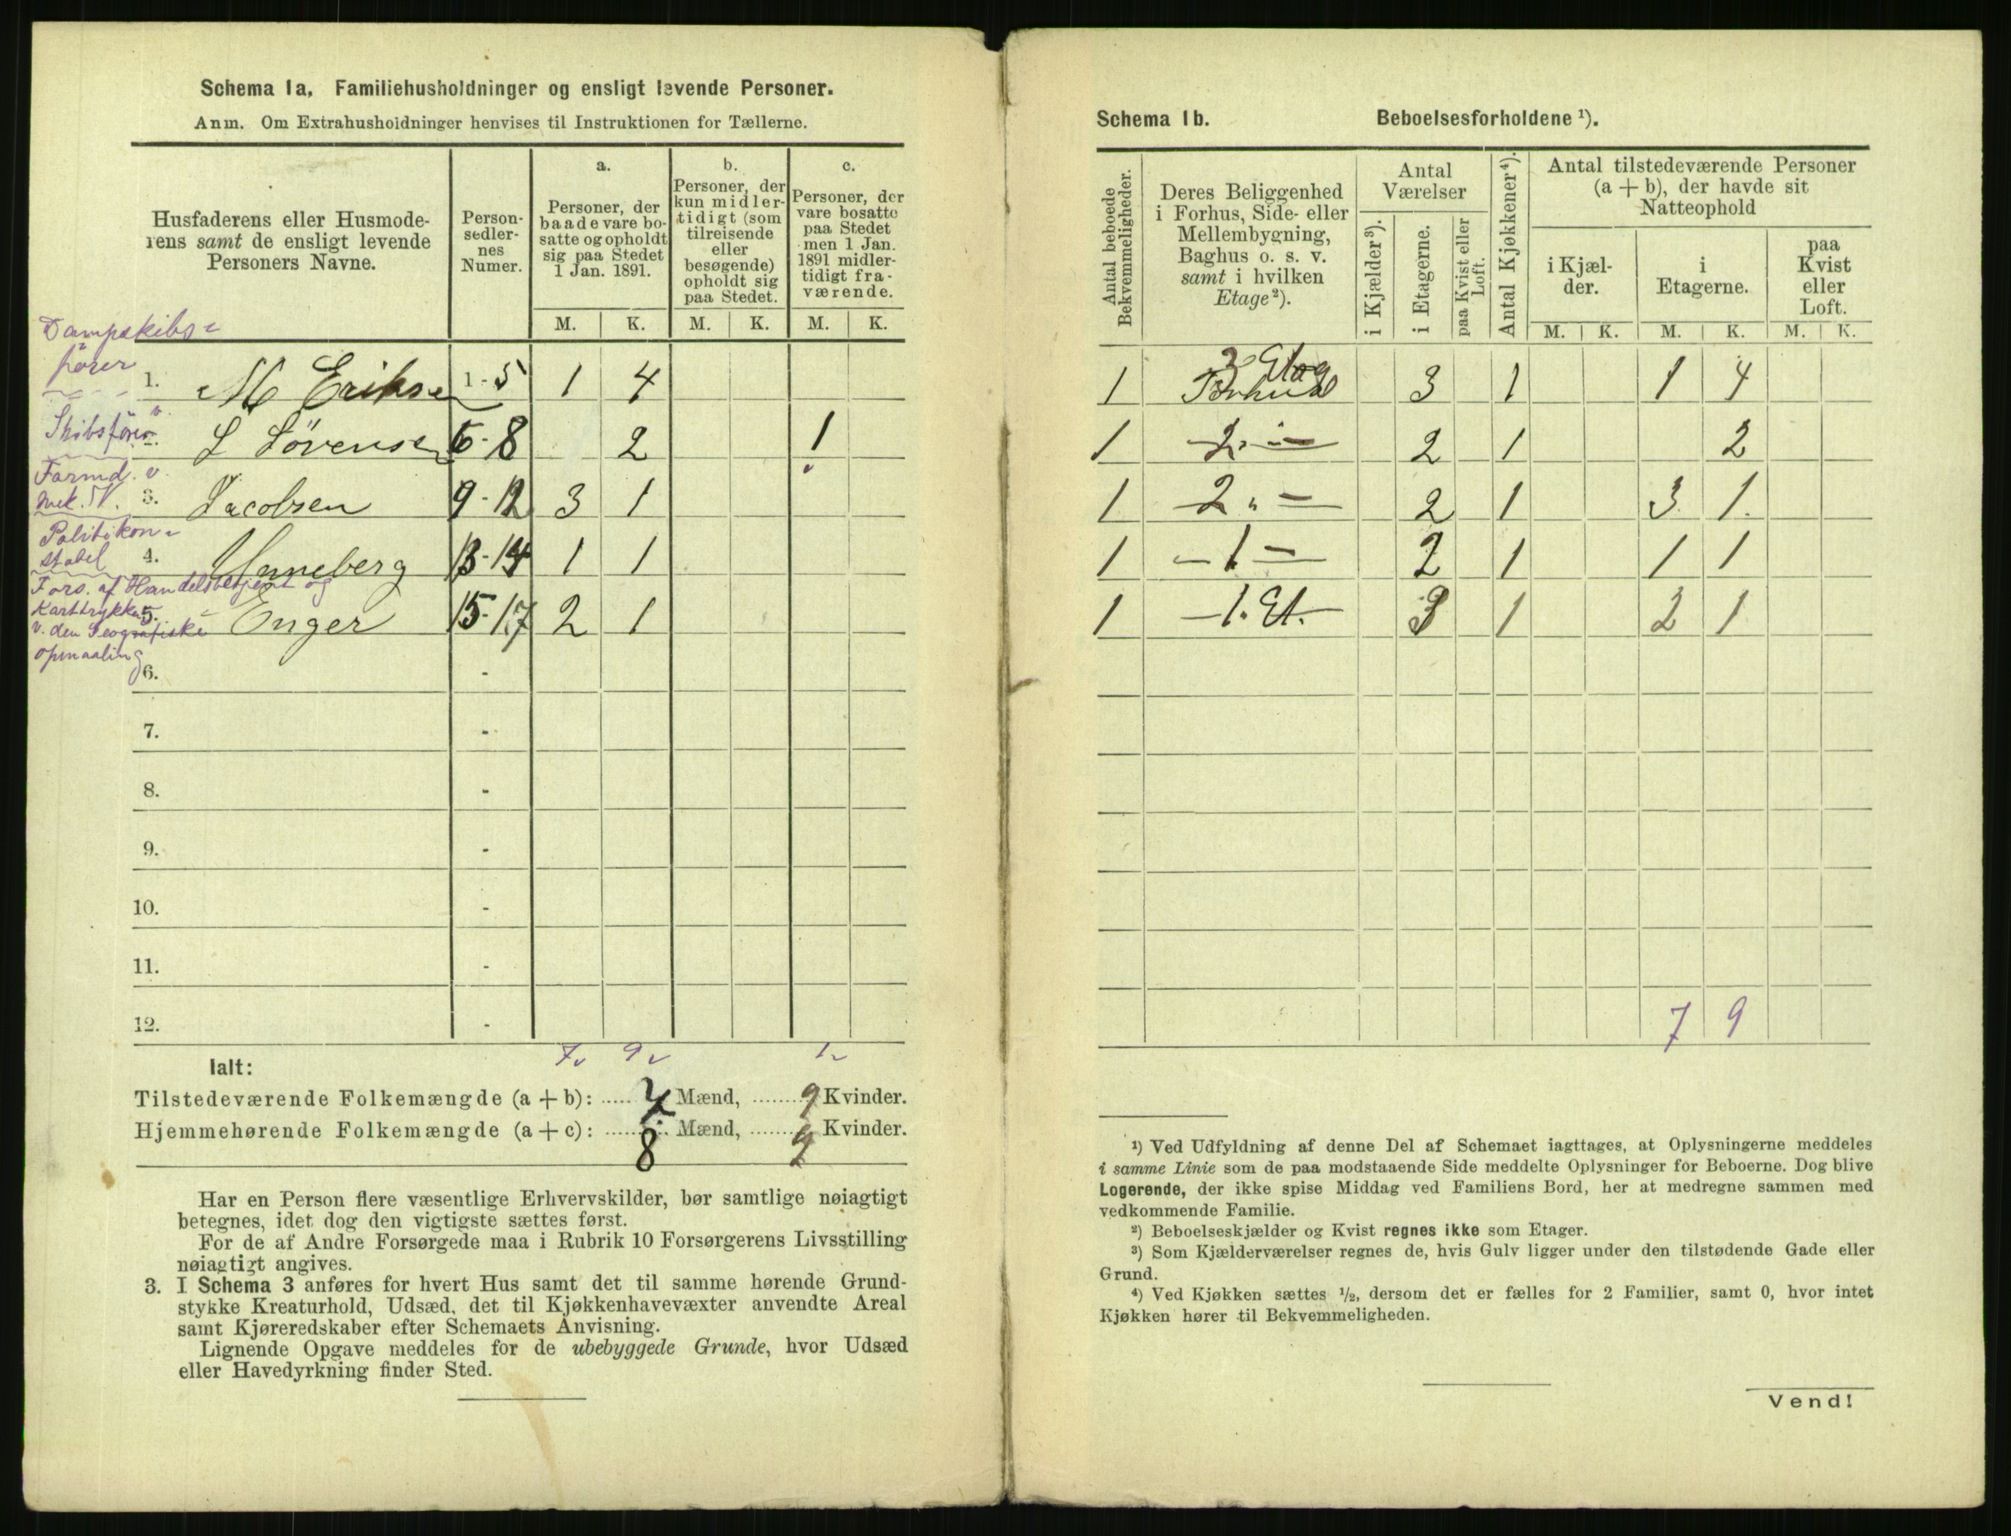 Schema 1a. Familiehusholdninger og ensligt levende Personer.
Anm. Om Extrahusholdninger henvises til Instruktionen for Tællerne.
Husfaderens eller Husmode-
rens samt de ensligt levende
Personers Navne.
Person-
sedler-
nes
Numer.
a.
Personer, der
baade vare bo-
satte og opholdt
sig paa Stedet
1 Jan. 1891.
b.
Personer, der
kun midler-
tidigt (som
tilreisende
eller
besøgende)
opholdt sig
paa Stedet.
c.
Personer, der
vare bosatte
paa Stedet
men 1 Jan.
1891 midler-
tidigt fra-
værende.
M. K. M. K. M. K.
Dampskibs-
fører
1. M Erikse 1-5 1 4
Skibsfører
2. L Sørense 6-8 2 1
Formd. v.
mek. V. 3. Jacobsen 9-12 3 1
Politikon-
stabel 4. Unneberg 13-14 1 1
Fors. af Handelsbetjent og
Karttrykker
v. den Geografiske
opmaaling
5. Enger 15-17 2 1
6. -
7. -
8. -
9. -
10. -
11. -
12. -
7 9 1
Ialt:
Tilstedeværende Folkemængde (a + b): 7 Mænd, 9 Kvinder.
Hjemmehørende Folkemængde (a + c): 8 Mænd, 9 Kvinder.
Har en Person flere væsentlige Erhvervskilder, bør samtlige nøiagtigt
betegnes, idet dog den vigtigste sættes først.
For de af Andre Forsørgede maa i Rubrik 10 Forsørgerens Livsstilling
nøiagtigt angives.
3. I Schema 3 anføres for hvert Hus samt det til samme hørende Grund-
stykke Kreaturhold, Udsæd, det til Kjøkkenhavevæxter anvendte Areal
samt Kjøreredskaber efter Schemaets Anvisning.
Lignende Opgave meddeles for de ubebyggede Grunde, hvor Udsæd
eller Havedyrkning finder Sted.
Schema 1b. Beboelsesforholdene ¹).
Antal beboede
Bekvemmeligheder.
Deres Beliggenhed
i Forhus, Side- eller
Mellembygning,
Baghus o. s. v.
samt i hvilken
Etage²).
Antal
Værelser
i Kjælder³).
i Etagerne.
paa Kvist eller
Loft.
Antal Kjøkkener⁴).
Antal tilstedeværende Personer
(a + b), der havde sit
Natteophold
i Kjæl-
der.
i
Etagerne.
paa
Kvist
eller
Loft.
M. K. M. K. M. K.
1 3 Etag Forhus 3 1 1 4
1 2. - 2 1 2
1 2. - 2 1 3 1
1 - 1 - 2 1 1 1
1 - 1. Et. 3 1 2 1
7 9
¹) Ved Udfyldning af denne Del af Schemaet iagttages, at Oplysningerne meddeles
i samme Linie som de paa modstaaende Side meddelte Oplysninger for Beboerne. Dog blive
Logerende, der ikke spise Middag ved Familiens Bord, her at medregne sammen med
vedkommende Familie.
²) Beboelseskjælder og Kvist regnes ikke som Etager.
³) Som Kjælderværelser regnes de, hvis Gulv ligger under den tilstødende Gade eller
Grund.
⁴) Ved Kjøkken sættes ½, dersom det er fælles for 2 Familier, samt 0, hvor intet
Kjøkken hører til Bekvemmeligheden.
Vend!